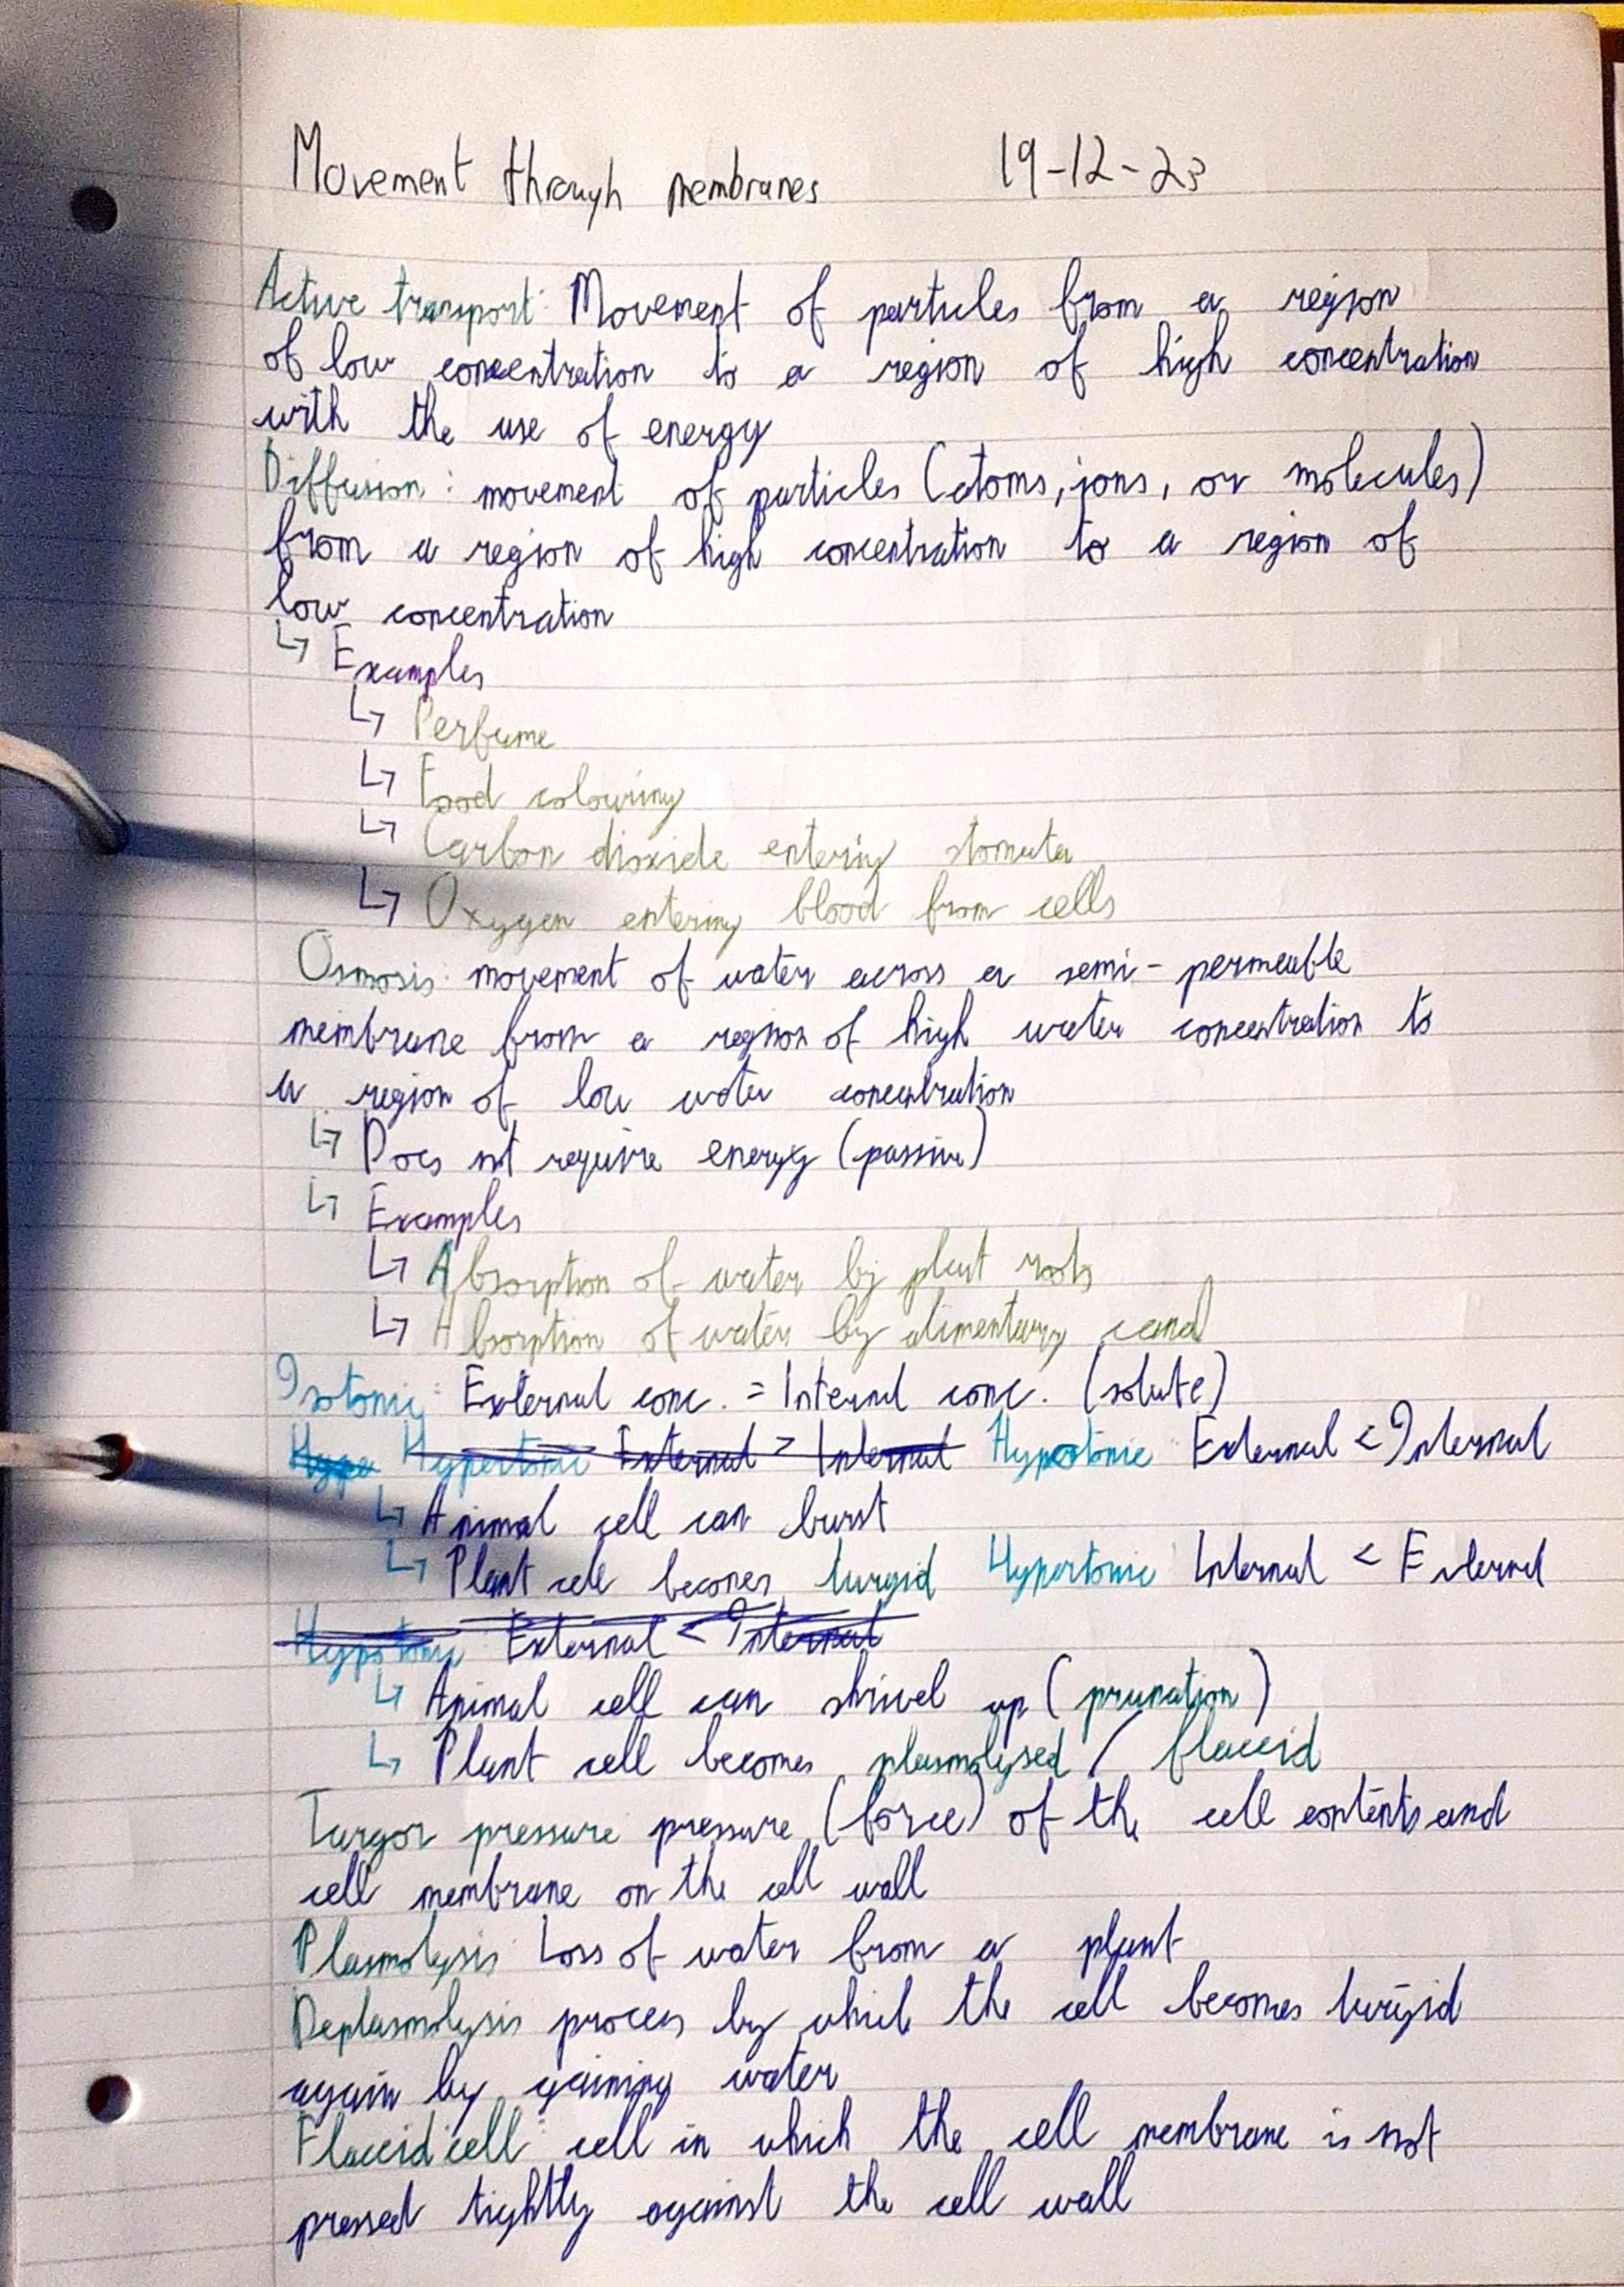 Movement through membranes 19-12-23
Active transport: Movement of particles from a region
of low concentration to a region of high concentration
with the use of energy
Diffusion: movement of particles (atoms, ions, or molecules)
from a region of high concentration to a region of
low concentration
↳ Examples
↳ Perfume
↳ Food colouring
↳ Carbon dioxide entering stomata
↳ Oxygen entering blood from cells
Osmosis: movement of water across a semi-permeable
membrane from a region of high water concentration to
a region of low water concentration
↳ Does not require energy (passive)
↳ Examples
↳ Absorption of water by plant roots
↳ Absorption of water by alimentary canal
Isotonic: External conc. = Internal conc. (solute)
Hype Hypertonic External > Internal Hypotonic External < Internal
↳ Animal cell can burst
↳ Plant cell becomes turgid Hypertonic Internal < External
Hypotonic External < Internal
↳ Animal cell can shrivel up (prunation)
↳ Plant cell becomes plasmolysed / flaccid
Turgor pressure pressure (force) of the cell contents and
cell membrane on the cell wall
Plasmolysis: Loss of water from a plant
Deplasmolysis process by which the cell becomes turgid
again by gaining water
Flaccid cell: cell in which the cell membrane is not
pressed tightly against the cell wall